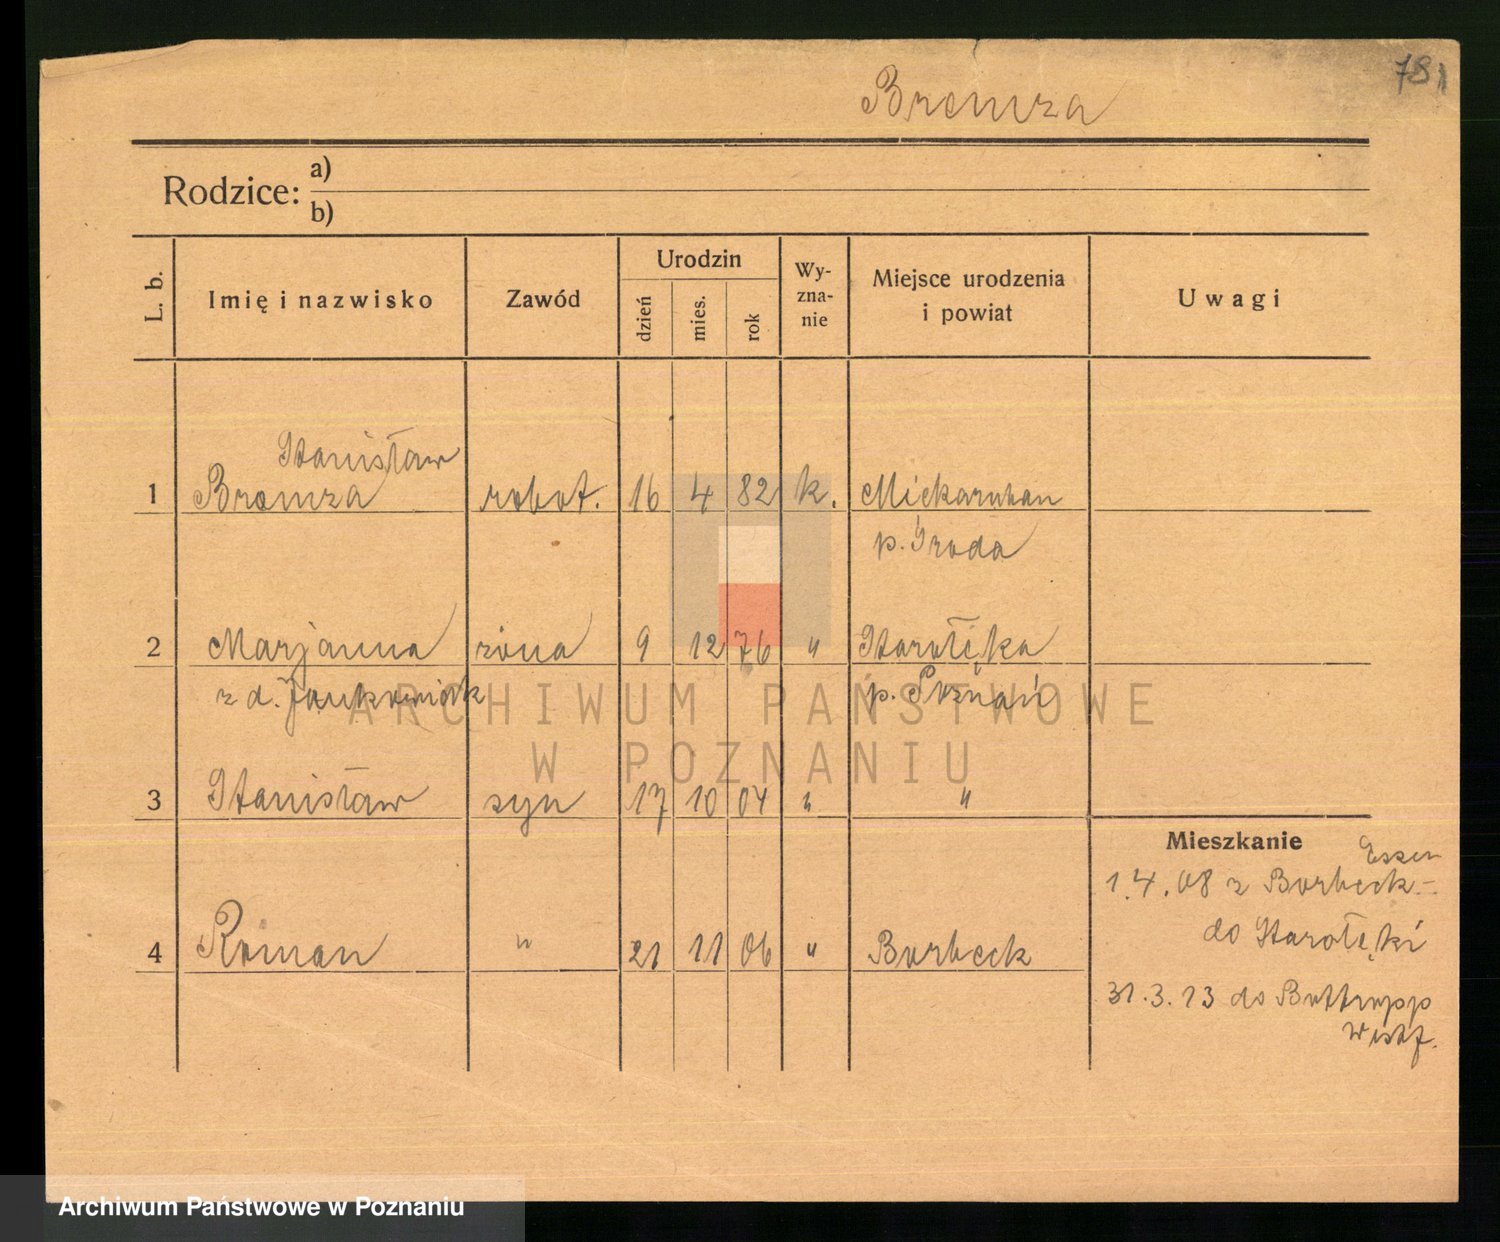 781
Bromza
Rodzice: a)
b)
L. b. Imię i nazwisko Zawód Urodzin dzień mies. rok Wy-zna-nie Miejsce urodzenia i powiat Uwagi
Stanisław
1 Bromza robot. 16 4 82 k.
p. Środa
2 Marjanna żona 9 12 76 " Starołęka
z d. Jankowiak p. Poznań
3 Stanisław syn 17 10 04 " "
Mieszkanie
Essen
1.4.08 z Borbeck-
do Starołęki
4 Roman " 21 11 06 " Borbeck
31.3.13 do Bottropp
Westf.
ARCHIWUM PAŃSTWOWE
W POZNANIU
Archiwum Państwowe w Poznaniu